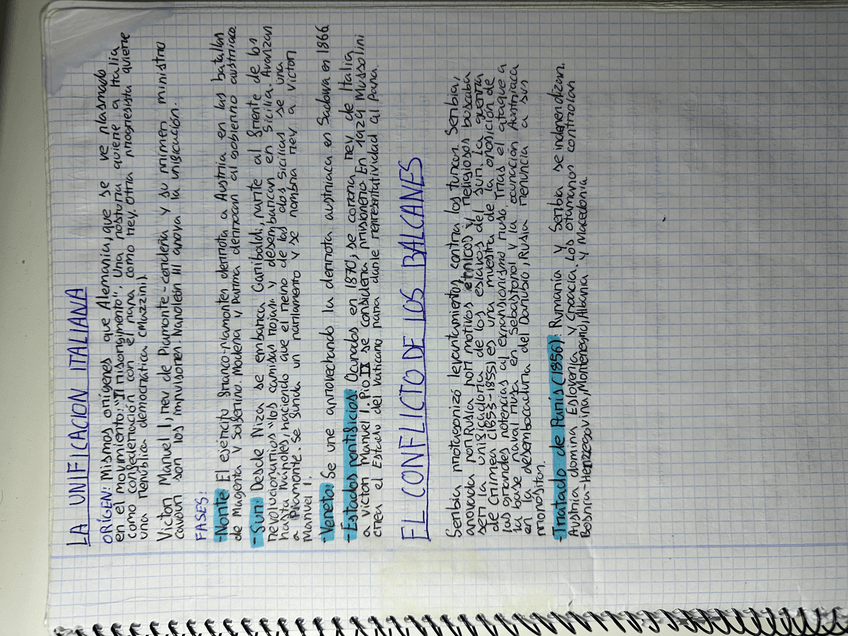 LA UNIFICACIÓN ITALIANA
ORÍGEN: Mismos orígenes que Alemania, que se ve plasmado
en el movimiento: "Il risorgimento". Una postura quiere a Italia
como confederación con el papa como rey. Otra progresista quiere
una república democrática (Mazzini).
Víctor Manuel I, rey de Piamonte-cerdeña y su primer ministro
cavour son los impulsores. Napoleón III apoya la unificación.
FASES:
-Norte: El ejército franco-piamontés derrota a Austria en las batallas
de Magenta y Solferino. Modena y Parma derrocan al gobierno austriaco.
-Sur: Desde Niza se embarca Garibaldi, parte al frente de los
revolucionarios "los camisas rojas" y desembarcan en Sicilia. Avanzan
hasta Nápoles, haciendo que el reino de las dos Sicilias se una
a Piamonte. Se funda un parlamento y se nombra rey a Víctor
Manuel I.
-Veneto: Se une aprovechando la derrota austriaca en Sadowa en 1866
-Estados pontificios: Ocupados en 1870, se corona rey de Italia
a Víctor Manuel I. Pio IX se considera prisionero. En 1929 Mussolini
crea el Estado del Vaticano para darle representatividad al Papa.
EL CONFLICTO DE LOS BALCANES
Serbia protagonizó levantamientos contra los turcos. Serbia,
apoyada por Rusia por motivos étnicos y religiosos buscaba
ser la unificadora de los eslavos del sur. La guerra
de Crimea (1853-1855) es una muestra de la oposición de
las grandes potencias al expansionismo ruso. Tras el ataque a
la base naval rusa en Sebastopol y la ocupación Austriaca
en la desembocadura del Danubio, Rusia renuncia a sus
propósitos.
-Tratado de París (1856): Rumania y Serbia se independizan.
Austria domina Eslovenia y Croacia. Los otomanos controlan
Bosnia-Herzegovina, Montenegro, Albania y Macedonia